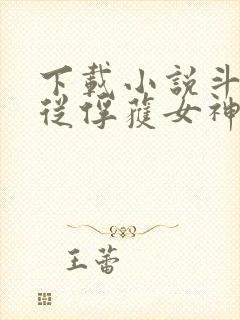 下載小說斗
從俘蓷女神
王蕾